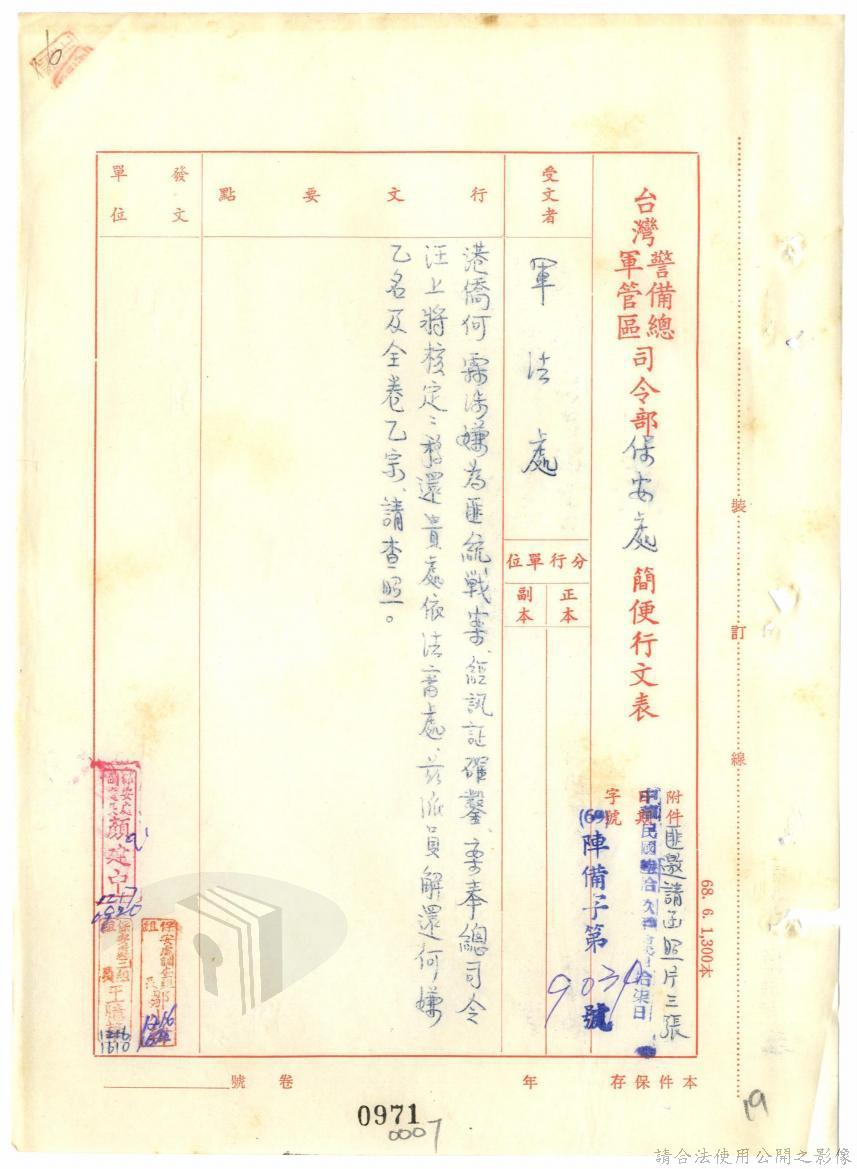 台灣警備總軍管區司令部保安處簡便行文表
附件 匪邀請函照片三張
日期 中華民國陸拾玖年拾貳月拾柒日
字號 (69)陣備字第9034號
受文者 軍法處
分行單位
正本
副本
行文要點
港僑何霖涉嫌為匪統戰案、經訊証確鑿、案奉總司令
汪上將核定:移還貴處依法審處、茲派員解還何嫌
乙名及全卷乙宗、請查照。
發文單位
顏建中
1217
0920
1216
1216
1610
本件保存 年 卷 號
裝訂線
68. 6. 1,300本
0971
0007
19
請合法使用公開之影像